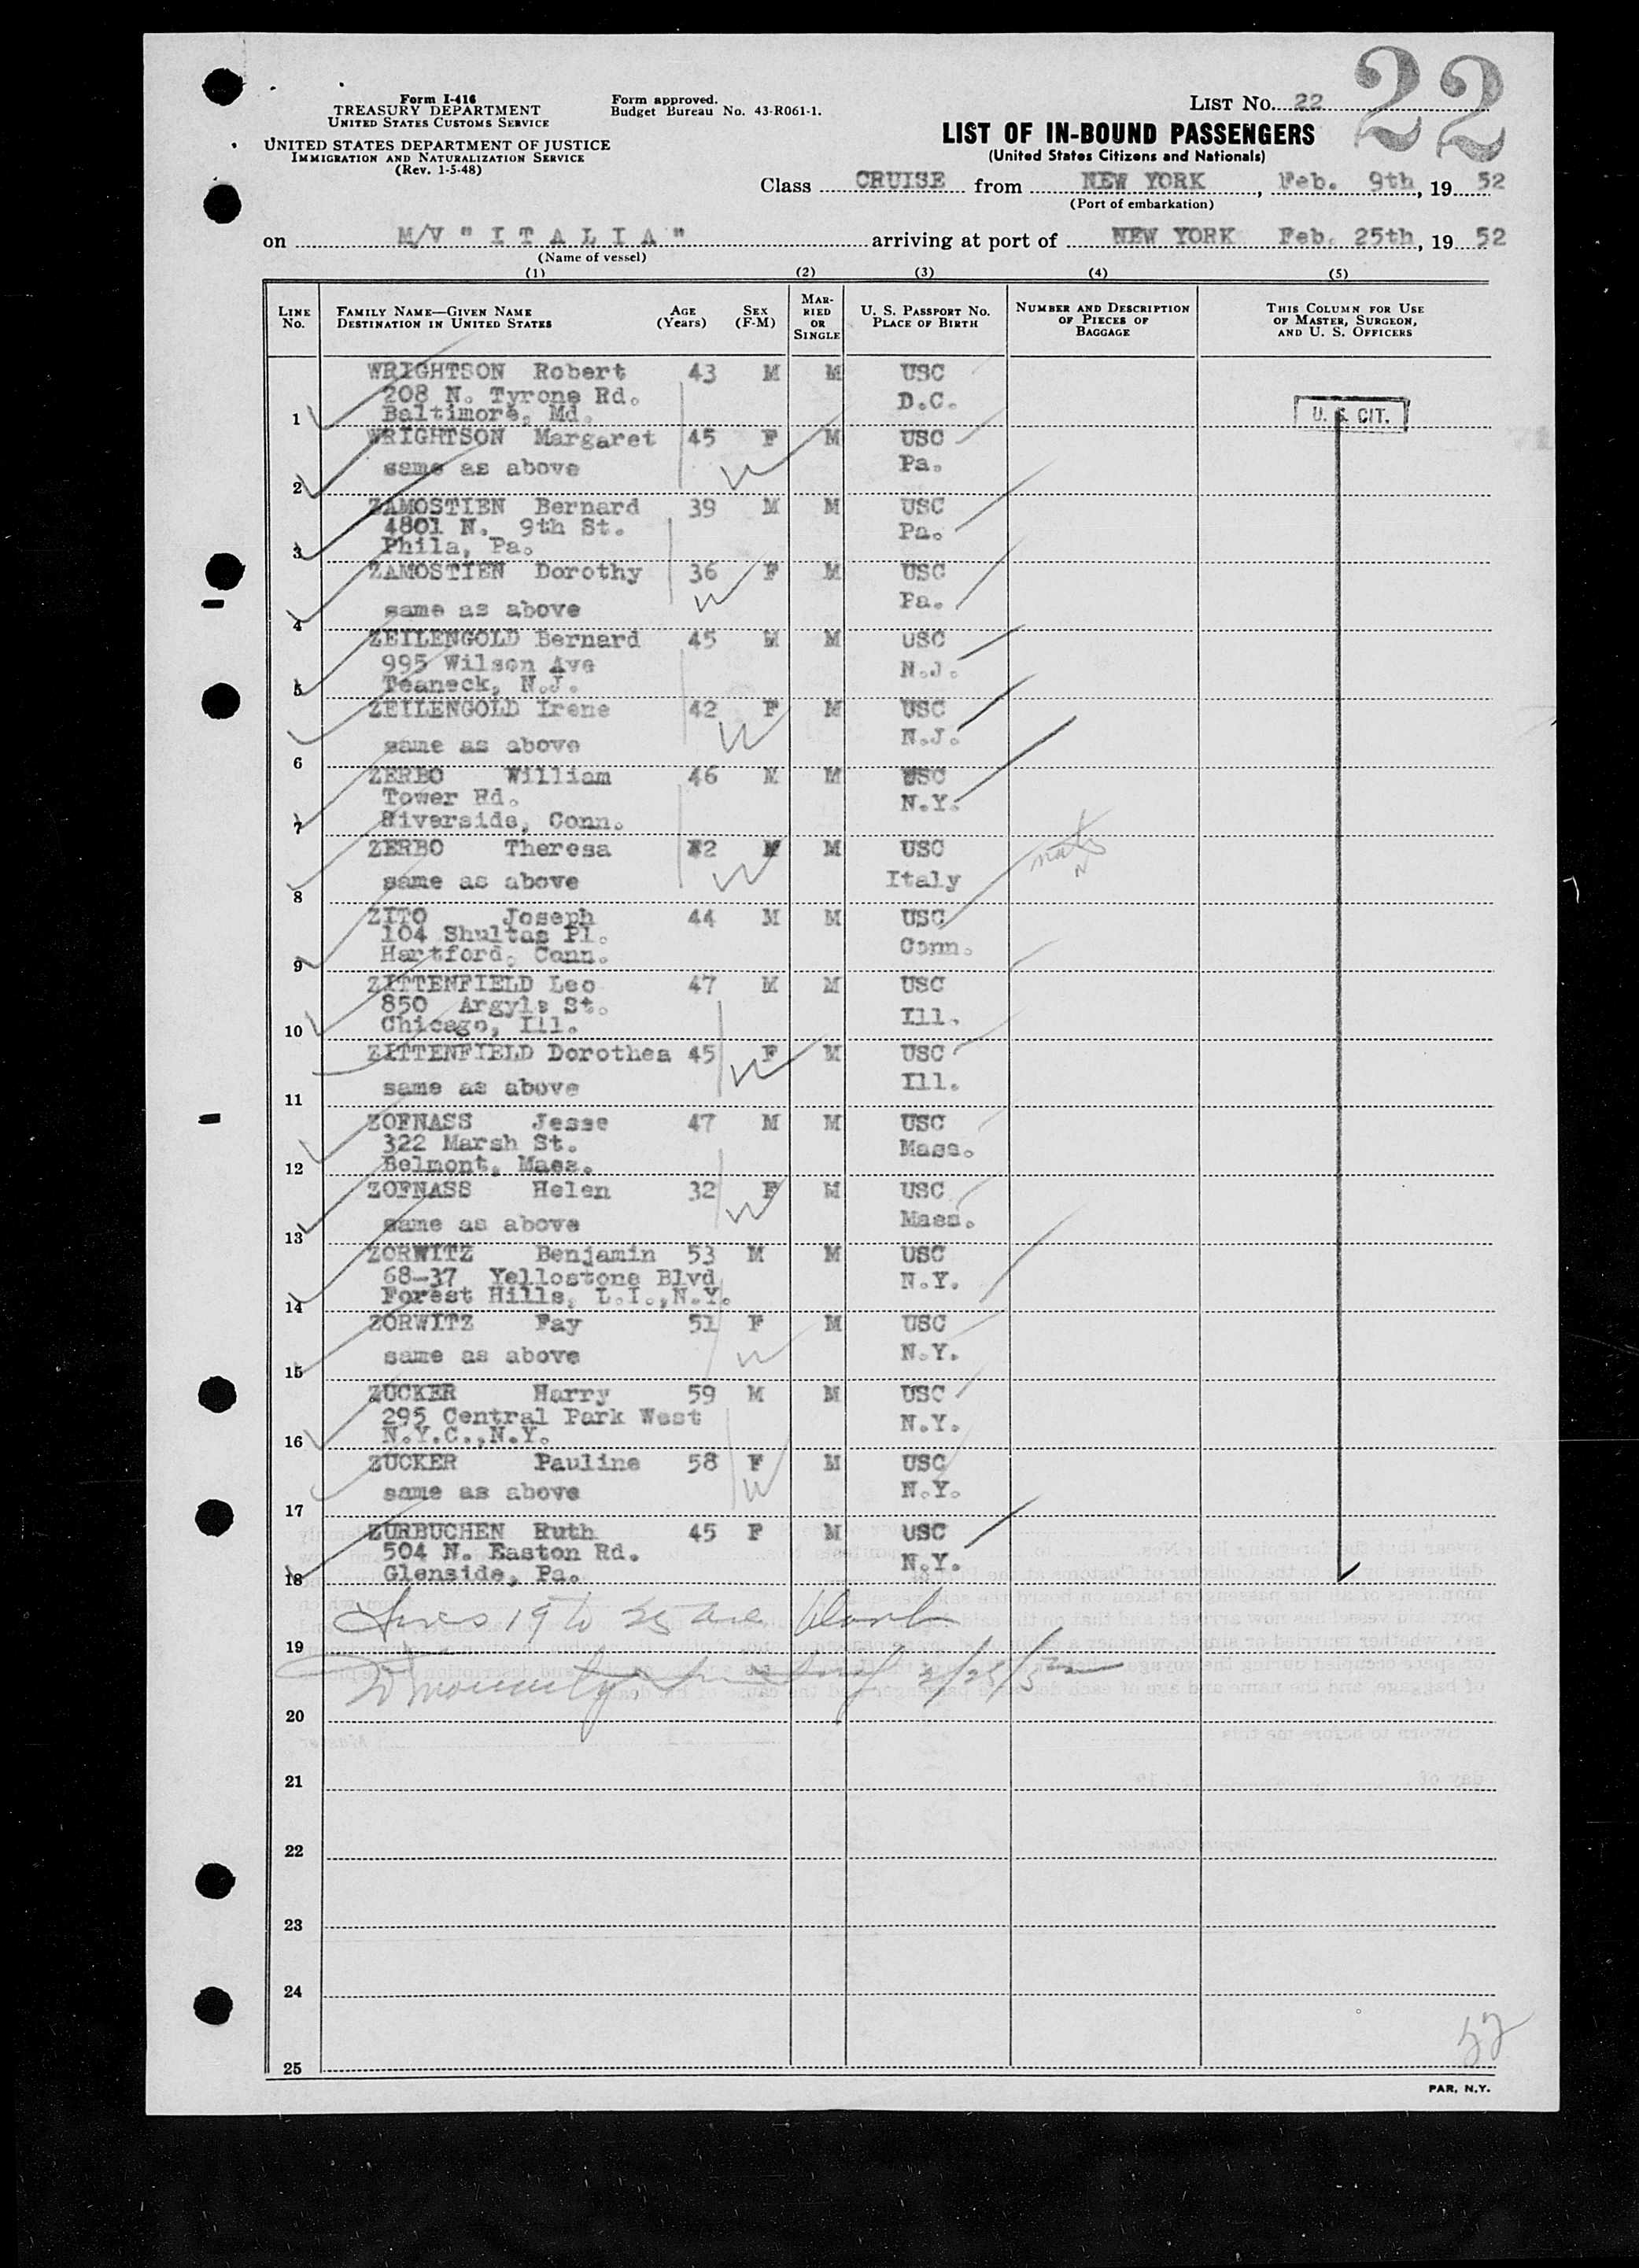 22
Form I-416
TREASURY DEPARTMENT
UNITED STATES CUSTOMS SERVICE
UNITED STATES DEPARTMENT OF JUSTICE
IMMIGRATION AND NATURALIZATION SERVICE
(Rev. 1-5-48)
Form approved.
Budget Bureau No. 43-R061-1.
LIST No. 22
LIST OF IN-BOUND PASSENGERS
(United States Citizens and Nationals)
Class CRUISE from NEW YORK, Feb. 9th, 19 52
(Port of embarkation)
on M/V " I T A L I A " arriving at port of NEW YORK Feb. 25th, 19 52
(Name of vessel)
(1) (2) (3) (4) (5)
LINE No. FAMILY NAME—GIVEN NAME DESTINATION IN UNITED STATES AGE (Years) SEX (F-M) MARRIED OR SINGLE U. S. PASSPORT NO. PLACE OF BIRTH NUMBER AND DESCRIPTION OF PIECES OF BAGGAGE THIS COLUMN FOR USE OF MASTER, SURGEON, AND U. S. OFFICERS
WRIGHTSON Robert 43 M M USC
208 N. Tyrone Rd. D.C.
1 Baltimore, Md. U. S. CIT.
WRIGHTSON Margaret 45 F M USC
2 same as above Pa.
ZAMOSTIEN Bernard 39 M M USC
4801 N. 9th St. Pa.
3 Phila, Pa.
ZAMOSTIEN Dorothy 36 F M USC
4 same as above Pa.
ZEILENGOLD Bernard 45 M M USC
995 Wilson Ave N.J.
5 Teaneck, N.J.
ZEILENGOLD Irene 42 F M USC
6 same as above N.J.
ZERBO William 46 M M USC
Tower Rd. N.Y.
7 Riverside, Conn.
ZERBO Theresa 42 M USC
8 same as above Italy
ZITO Joseph 44 M M USC
104 Shultas Pl. Conn.
9 Hartford, Conn.
ZITTENFIELD Leo 47 M M USC
850 Argyle St. Ill.
10 Chicago, Ill.
ZITTENFIELD Dorothea 45 F M USC
11 same as above Ill.
ZOFNASS Jesse 47 M M USC
322 Marsh St. Mass.
12 Belmont, Mass.
ZOFNASS Helen 32 F M USC
13 same as above Mass.
ZORWITZ Benjamin 53 M M USC
68-37 Yellostone Blvd N.Y.
14 Forest Hills, L.I.,N.Y.
ZORWITZ Fay 51 F M USC
15 same as above N.Y.
ZUCKER Harry 59 M M USC
295 Central Park West N.Y.
16 N.Y.C.,N.Y.
ZUCKER Pauline 58 F M USC
17 same as above N.Y.
ZURBUCHEN Ruth 45 F M USC
504 N. Easton Rd. N.Y.
18 Glenside, Pa.
Lines 19 to 25 are blank
19
2/25/52
20
21
22
23
24
25
PAR, N.Y.